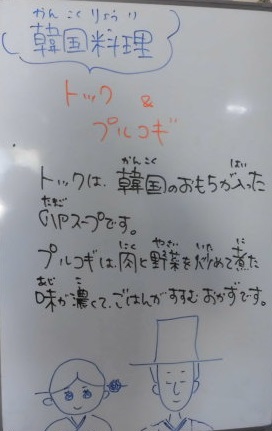 かんこくりょうり
韓国料理
トック &
プルコギ
かんこく はい
トックは、韓国のおもちが入った
たまご
卵スープです。
にく やさい いた に
プルコギは、肉と野菜を炒めて煮た
あじ こ
味が濃くて、ごはんがすすむおかずです。